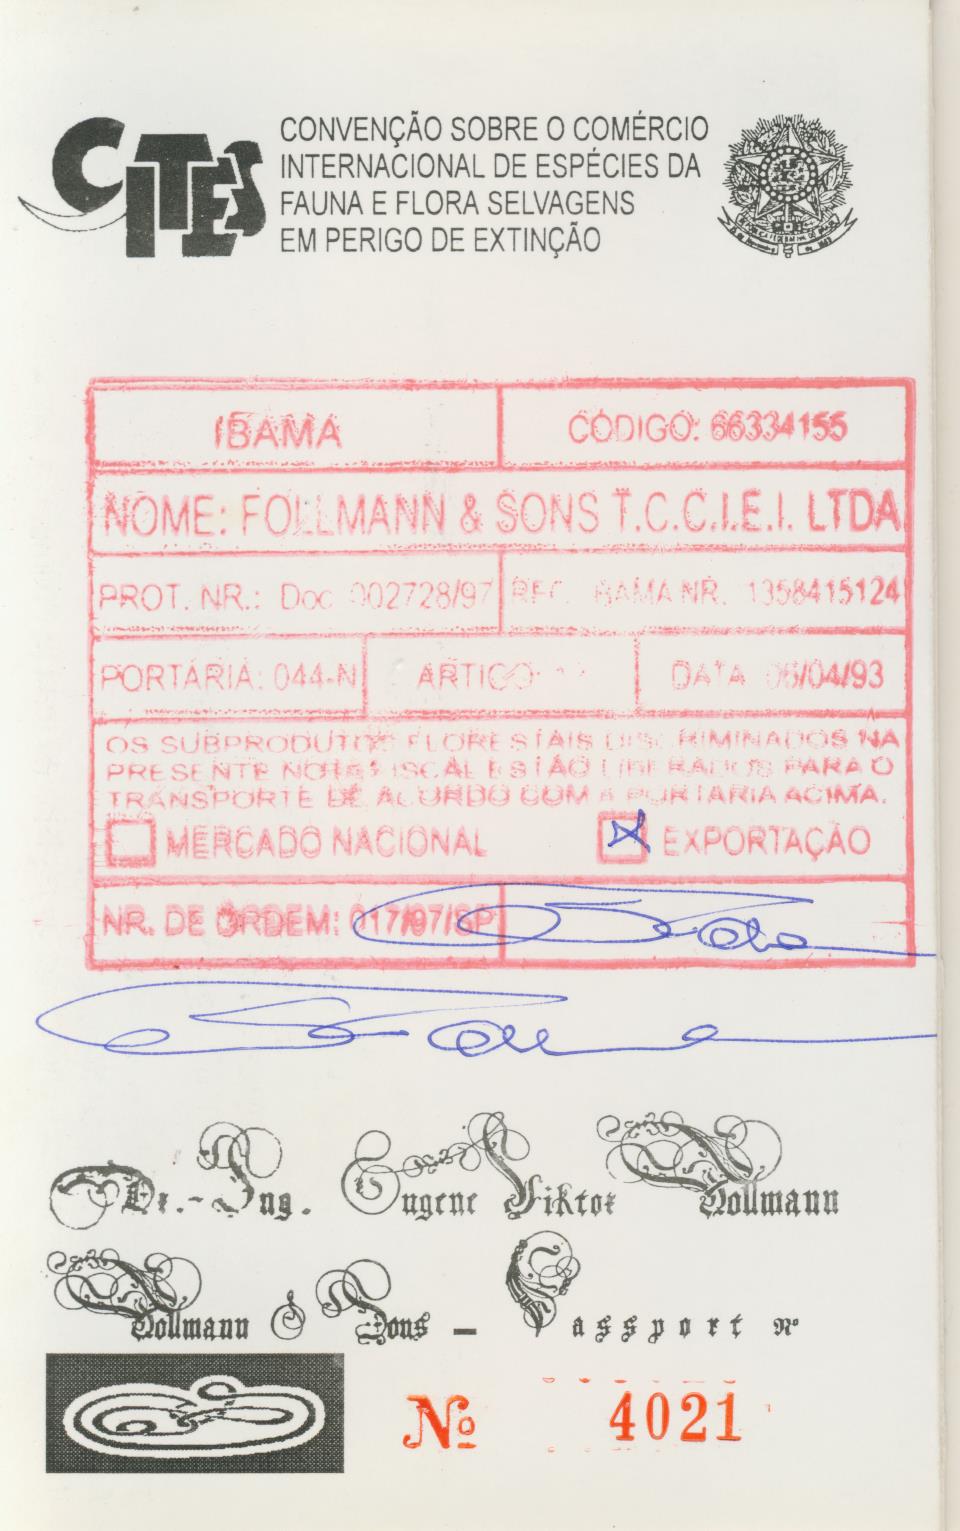 CITES
CONVENÇÃO SOBRE O COMÉRCIO
INTERNACIONAL DE ESPÉCIES DA
FAUNA E FLORA SELVAGENS
EM PERIGO DE EXTINÇÃO
IBAMA
CÓDIGO: 66334155
NOME: FOLLMANN & SONS T.C.C.I.E.I. LTDA
PROT. NR.: Doc 002728/97
REC. IBAMA NR. 1358415124
PORTARIA: 044-N
ARTIGO
DATA 06/04/93
OS SUBPRODUTOS FLORESTAIS DISCRIMINADOS NA
PRESENTE NOTA FISCAL ESTÃO LIBERADOS PARA O
TRANSPORTE DE ACORDO COM A PORTARIA ACIMA.
MERCADO NACIONAL
EXPORTAÇÃO
NR. DE ORDEM: 017/97/SP
Dr.-Ing. Eugene Viktor Follmann
Follmann & Sons - Passport Nº
Nº 4021